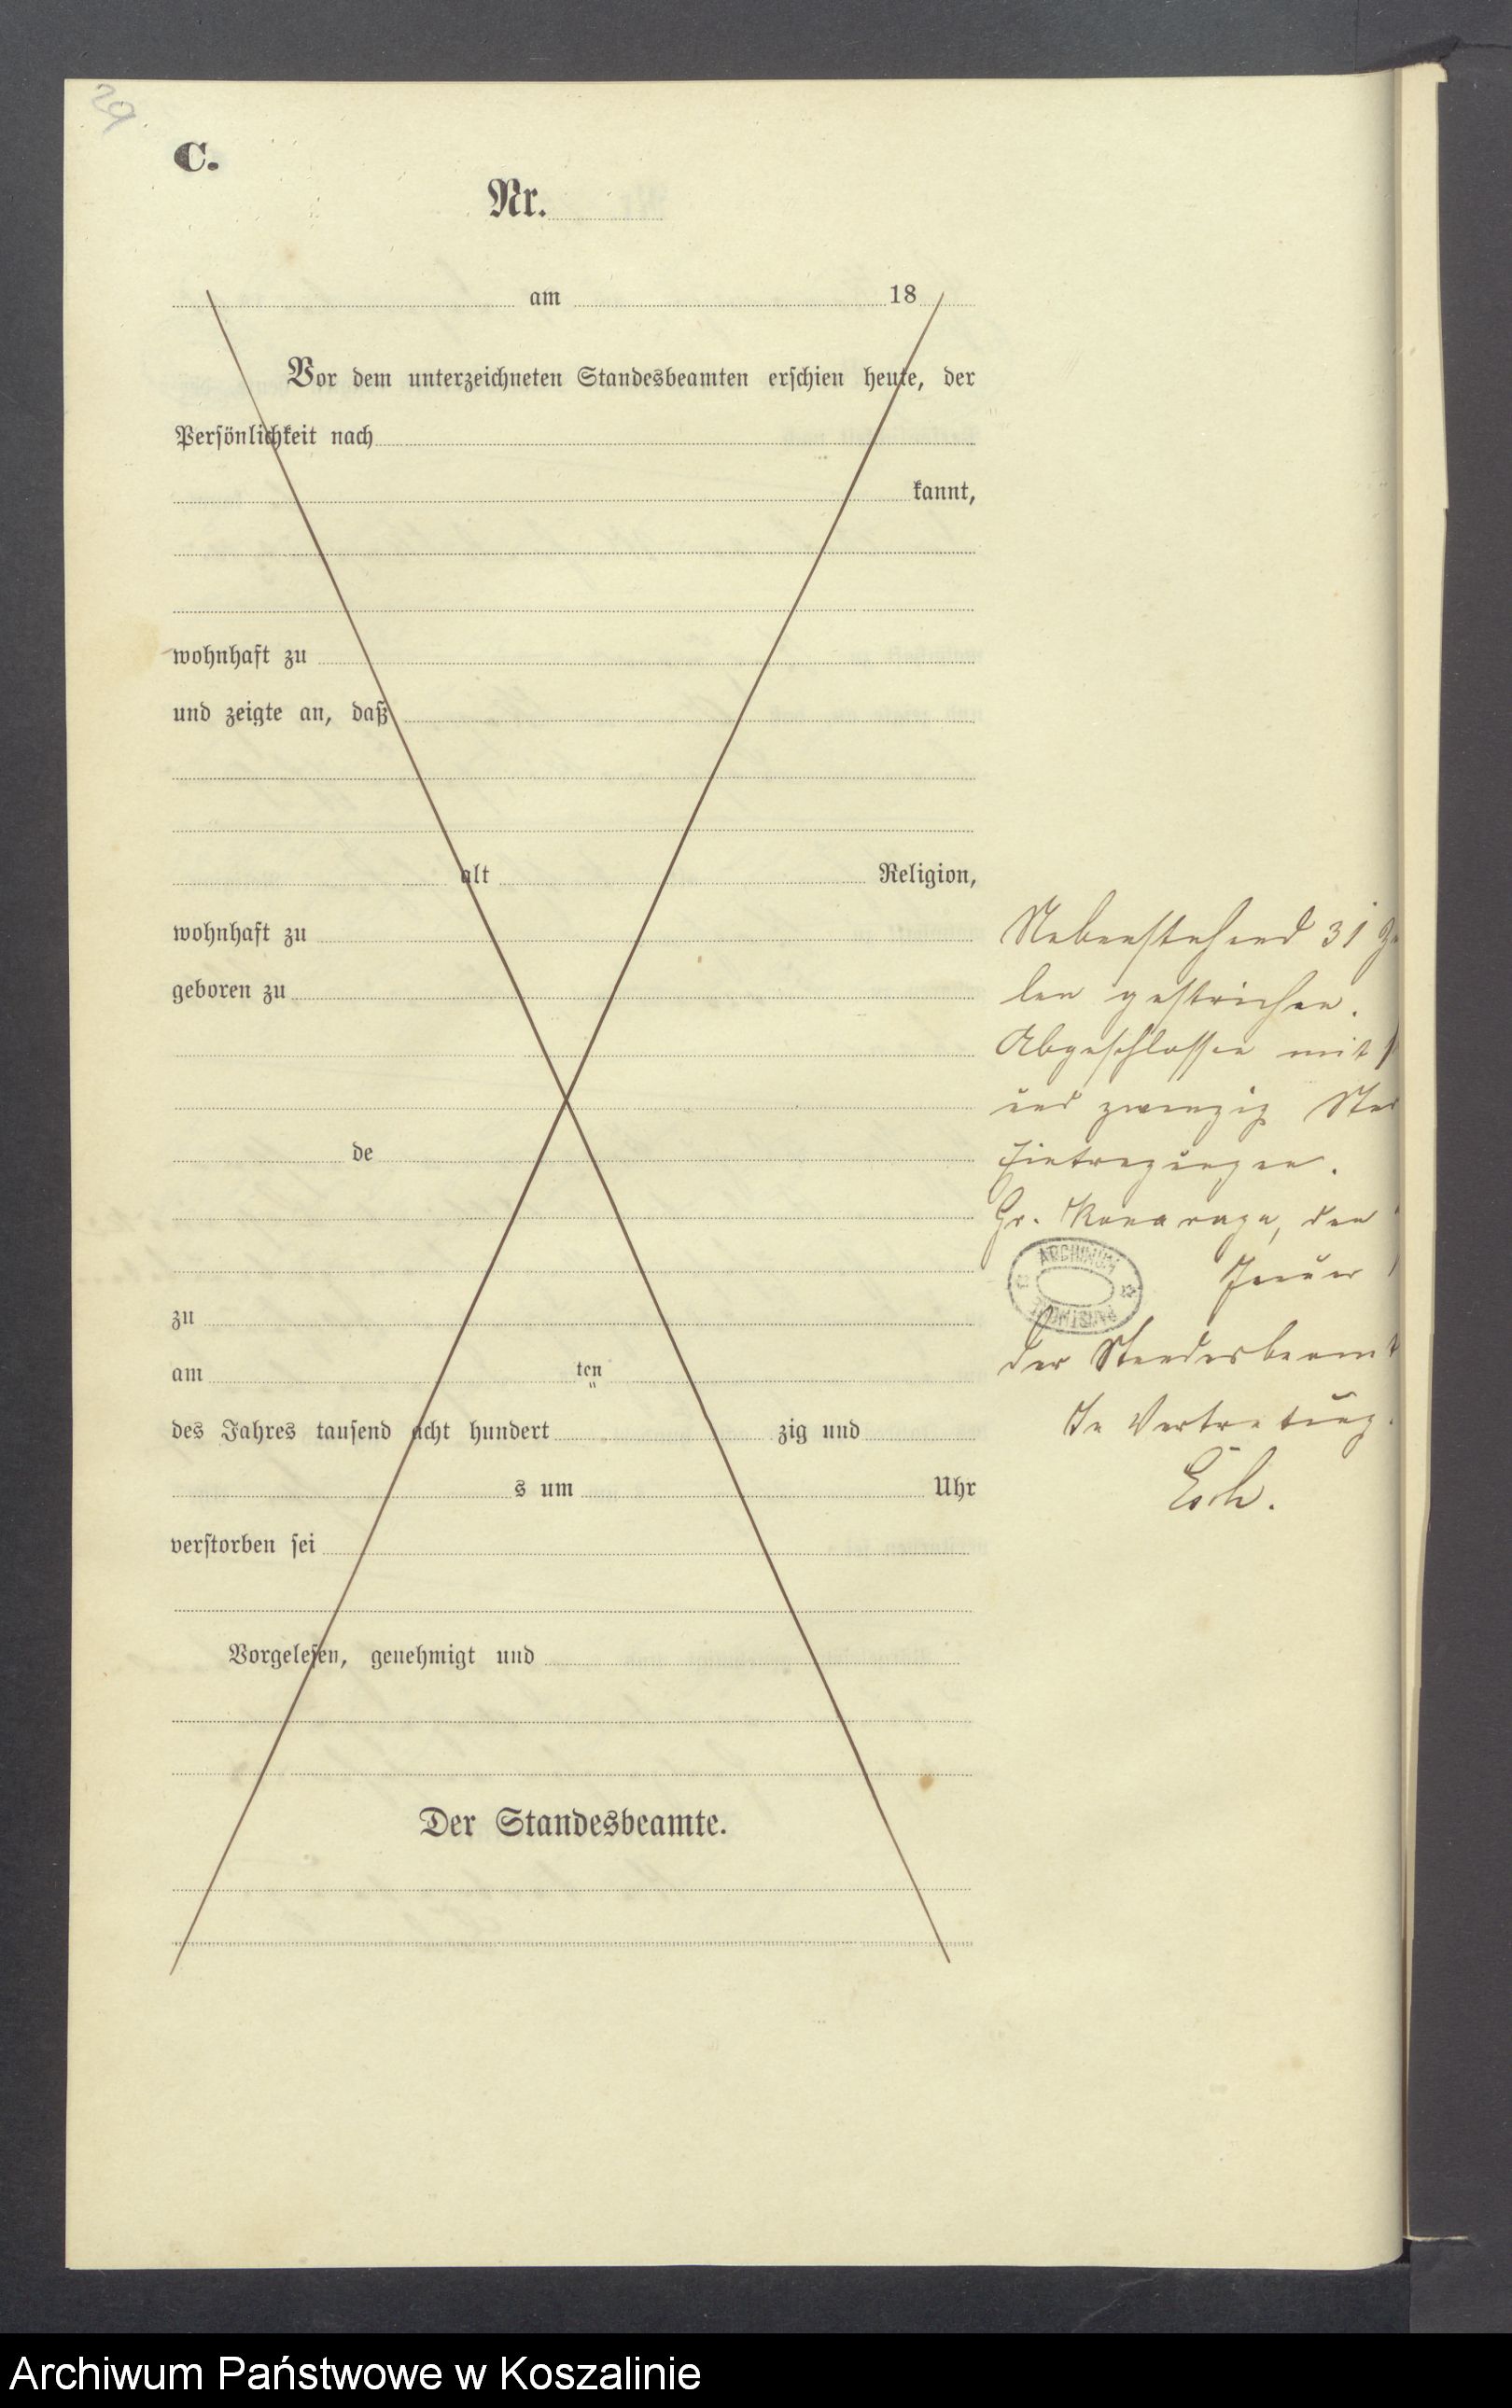 29
C.
Nr.
am 18
Vor dem unterzeichneten Standesbeamten erschien heute, der
Persönlichkeit nach
kannt,
wohnhaft zu
und zeigte an, daß
alt Religion,
wohnhaft zu
geboren zu
de
zu
am ten
des Jahres tausend acht hundert zig und
s um Uhr
verstorben sei
Vorgelesen, genehmigt und
Der Standesbeamte.
Nebenstehend 31
len gestrichen.
Abgeschlossen mit
und zwanzig
Eintragungen.
Gr. den
ARCHIWUM
PAŃSTWOWE
Januar
Der Standesbeamt
In Vertretung.
Archiwum Państwowe w Koszalinie